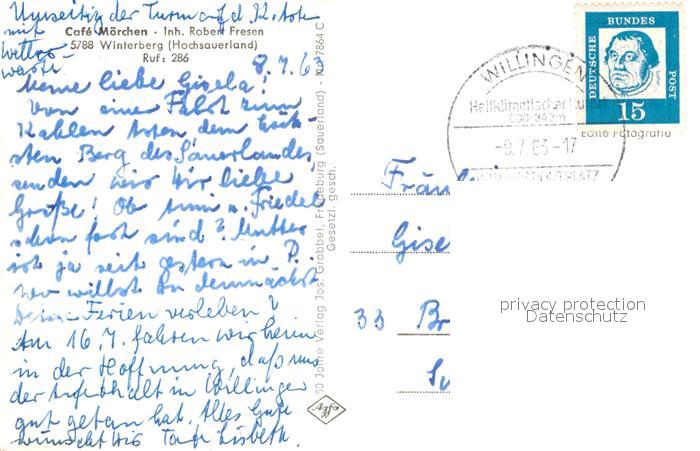 Umseitig der Turm auf d. K. Asten
mit
Wetter-
warte
Café Märchen · Inh. Robert Fresen
5788 Winterberg (Hochsauerland)
Ruf: 286
8.7.6
Meine liebe Gisela!
Von einer Fahrt zum
Kahlen Asten dem höch-
sten Berg des Sauerlandes
senden wir Dir liebe
Grüße! Ob u. Friedel
schon fort sind? Mutter
ist ja seit gestern in P.
wo willst Du demnächst
Deine Ferien verleben?
Am 16.7. fahren wir heim
in der Hoffnung, daß uns
der Aufenthalt in Willingen
gut getan hat. Alles Gute
wünscht Dir Tante Lisbeth.
30 Jahre Verlag Jos. Grobbel, Fredeburg (Sauerland) · 7864 C
Gesetzl. gesch.
WILLINGEN
Heilklimatischer Kurort
-9.7.65-17
DEUTSCHE BUNDES POST
15
Echte Fotografie
Fräu
Gise
33 Br
privacy protection
Datenschutz